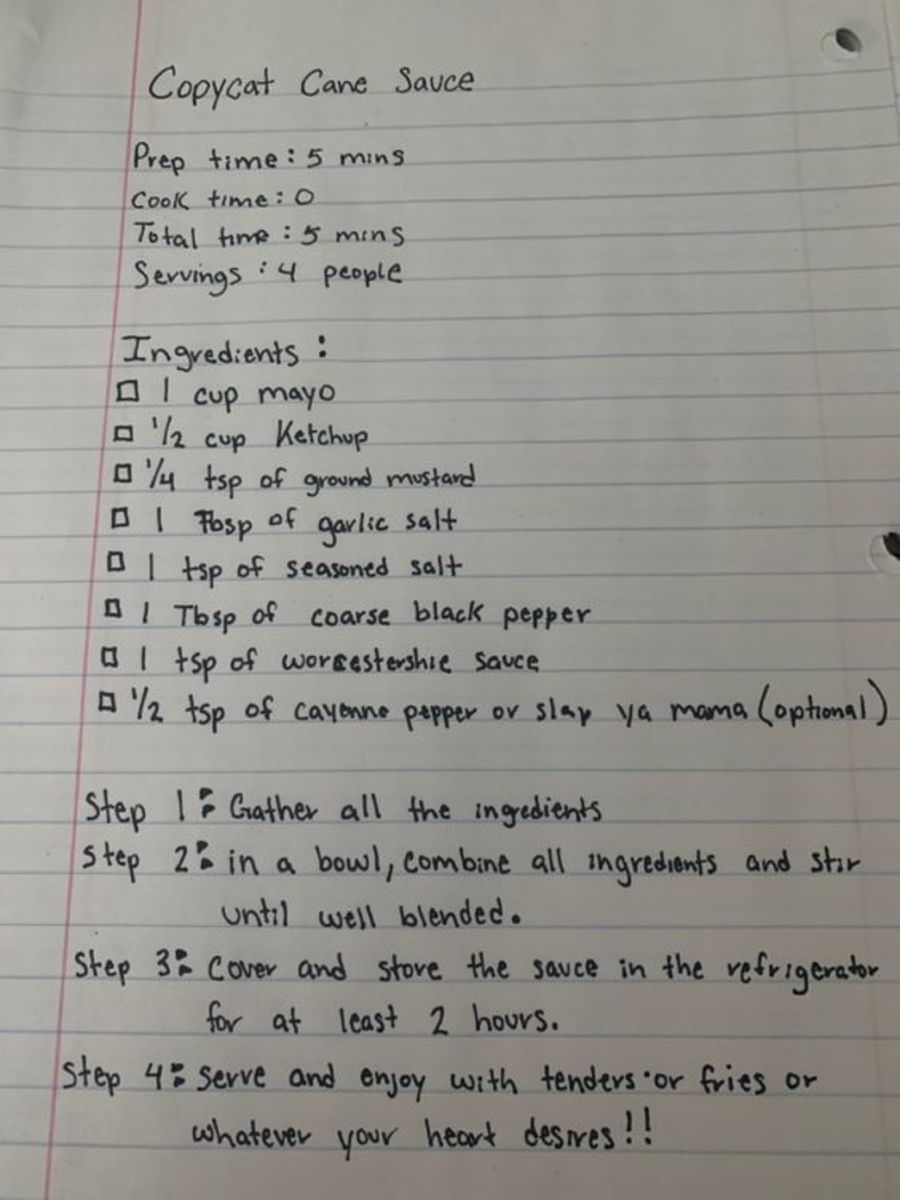 Copycat Cane Sauce
Prep time: 5 mins
Cook time: 0
Total time: 5 mins
Servings: 4 people
Ingredients:
☐ 1 cup mayo
☐ 1/2 cup Ketchup
☐ 1/4 tsp of ground mustard
☐ 1 Tbsp of garlic salt
☐ 1 tsp of seasoned salt
☐ 1 Tbsp of coarse black pepper
☐ 1 tsp of worcestershie sauce
☐ 1/2 tsp of cayenne pepper or slap ya mama (optional)
Step 1: Gather all the ingredients
Step 2: in a bowl, combine all ingredients and stir
until well blended.
Step 3: Cover and store the sauce in the refrigerator
for at least 2 hours.
Step 4: Serve and enjoy with tenders or fries or
whatever your heart desires!!